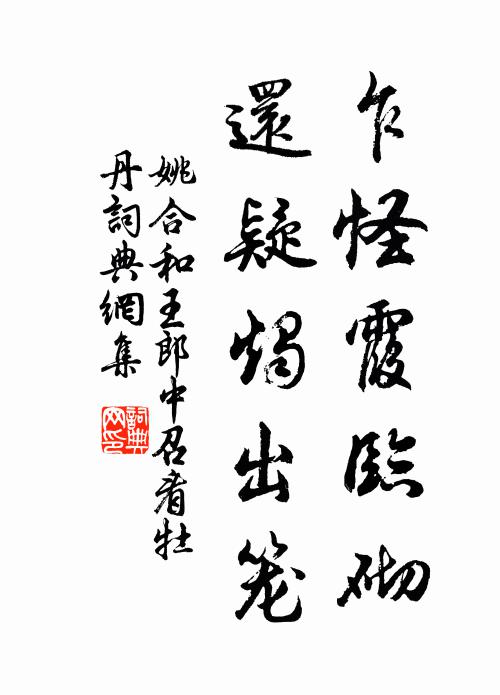 乍怪霞臨砌
還疑燭出笼
姚合和王郎中召看牡
丹詞典網集
詞典
网印